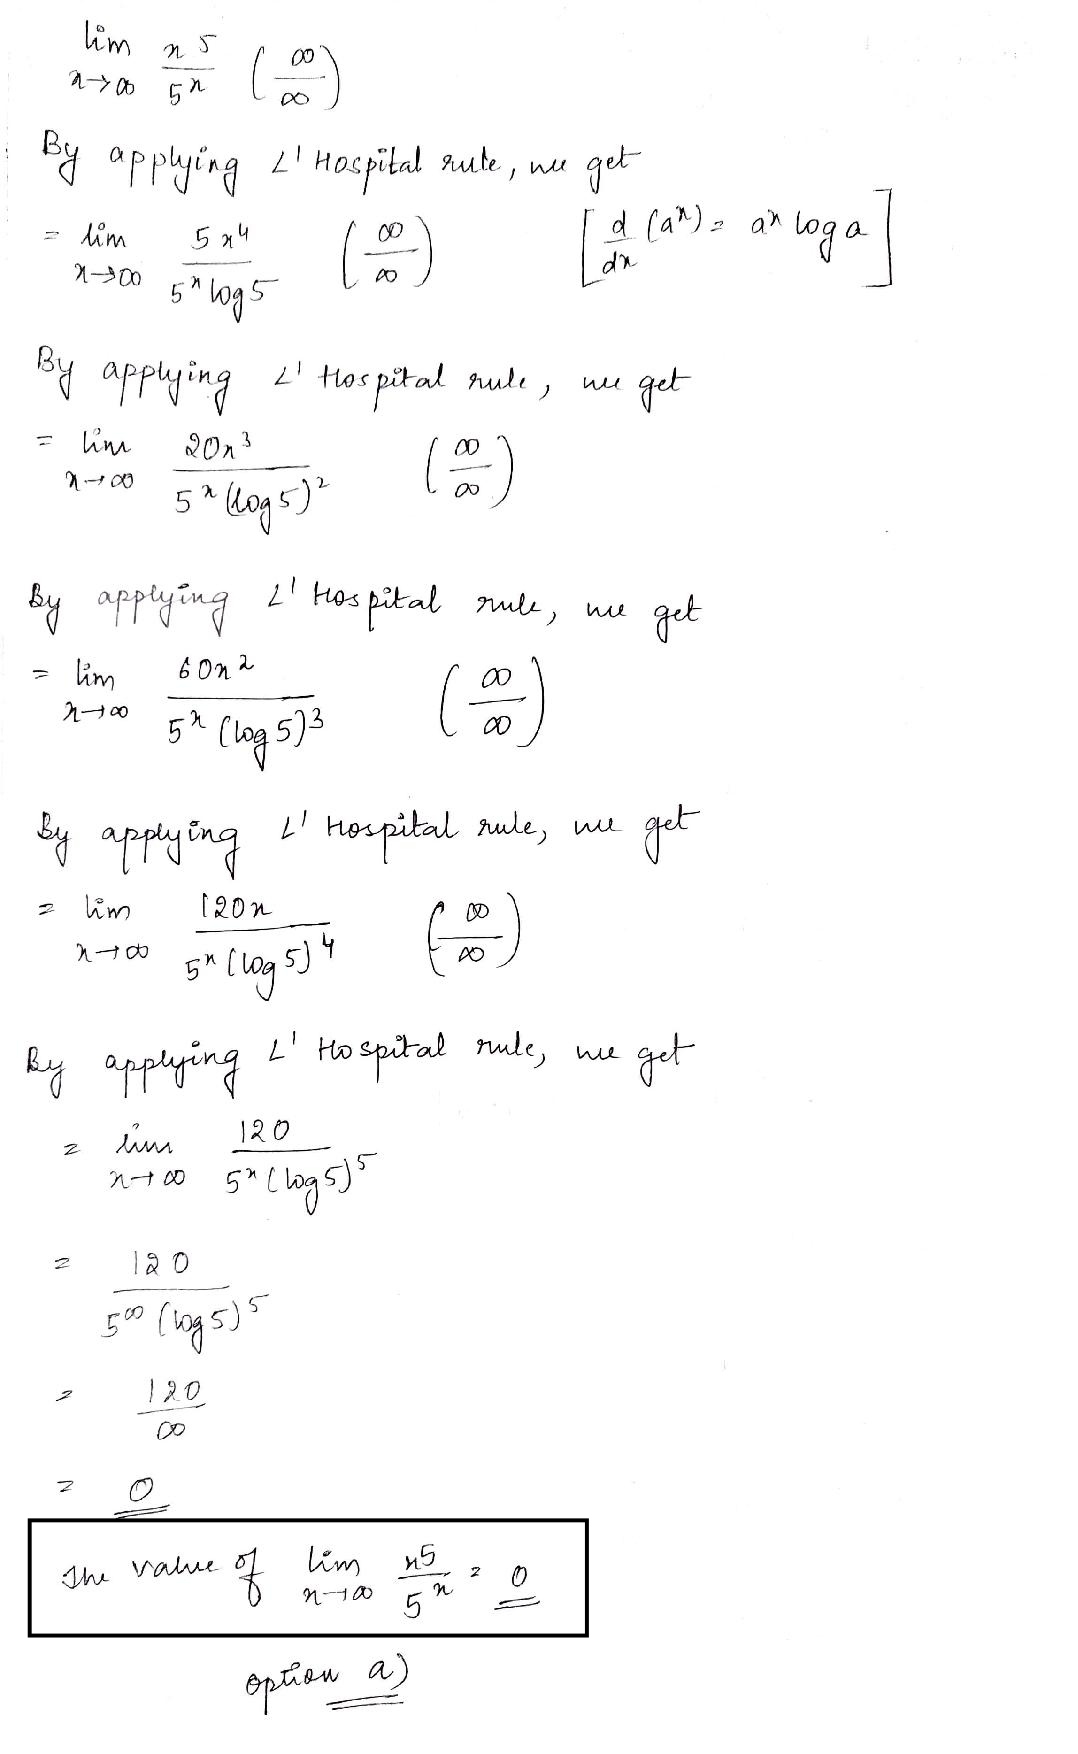 lim x→∞ x^5 / 5^x (∞/∞)
By applying L' Hospital rule, we get
= lim x→∞ 5x^4 / 5^x log 5 (∞/∞) [d/dx (a^x) = a^x log a]
By applying L' Hospital rule, we get
= lim x→∞ 20x^3 / 5^x (log 5)^2 (∞/∞)
By applying L' Hospital rule, we get
= lim x→∞ 60x^2 / 5^x (log 5)^3 (∞/∞)
By applying L' Hospital rule, we get
= lim x→∞ 120x / 5^x (log 5)^4 (∞/∞)
By applying L' Hospital rule, we get
= lim x→∞ 120 / 5^x (log 5)^5
= 120 / 5^∞ (log 5)^5
= 120 / ∞
= 0
The value of lim x→∞ x^5 / 5^x = 0
option a)